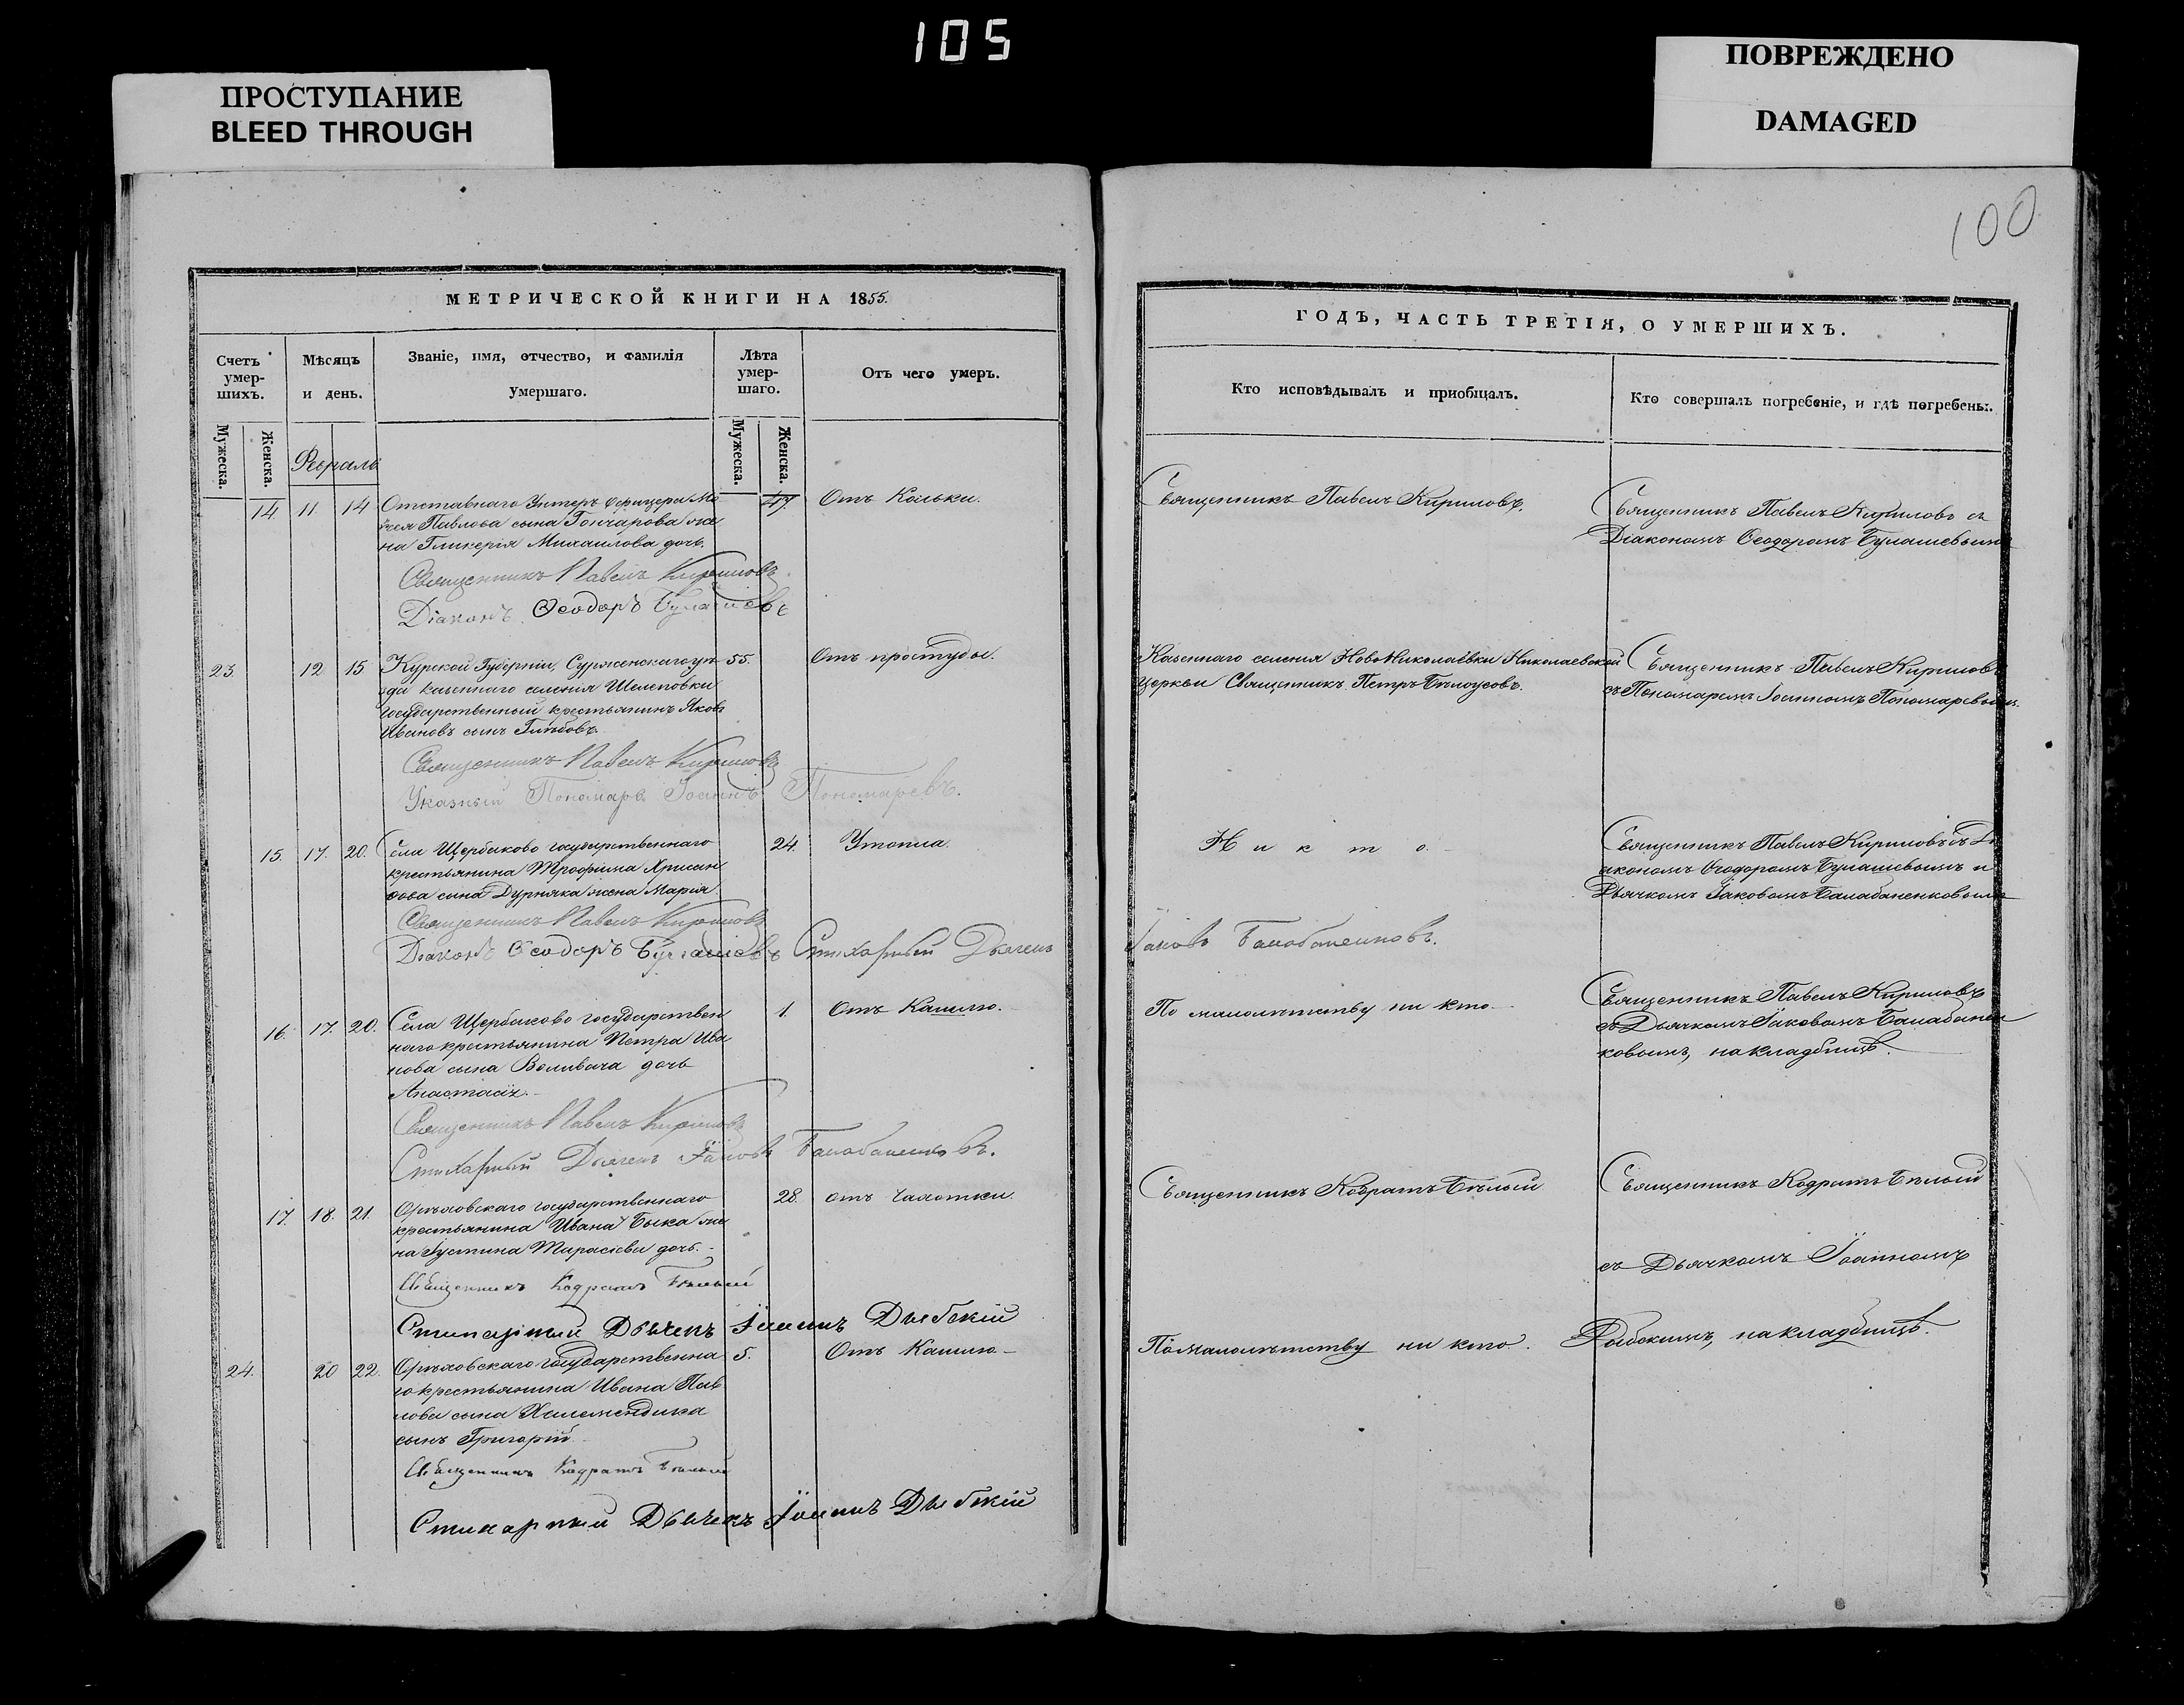 105
ПРОСТУПАНИЕ
BLEED THROUGH
ПОВРЕЖДЕНО
DAMAGED
100
МЕТРИЧЕСКОЙ КНИГИ НА 1855.
Счетъ умер-шихъ.
Мужеска.
Женска.
Мѣсяцъ и день.
Званіе, имя, отчество, и фамилія умершаго.
Лѣта умер-шаго.
Мужеска.
Женска.
Отъ чего умеръ.
ГОДЪ, ЧАСТЬ ТРЕТІЯ, О УМЕРШИХЪ.
Кто исповѣдывалъ и пріобщалъ.
Кто совершалъ погребеніе, и гдѣ погребены.
Февраль
14 11 14 Отставнаго Унтеръ Офицера Мо
Отъ Кольки.
Священникъ Павелъ Кириловъ.
Священникъ Павелъ Кириловъ съ
сея Павлова сына Гончарова же
Діакономъ Ѳеодоромъ Булашевымъ
на Гликерія Михаилова дочь.
Священникъ Павелъ Кириловъ
Діаконъ Ѳеодоръ Булашевъ
23. 12 15 Курской Губерніи, Суржанскаго уѣ 55. Отъ простуды.
Казеннаго селенія НовоНиколаевки Николаевской
Священникъ Павелъ Кириловъ
зда казеннаго селенія Шелеповки
церкви Священникъ Петръ Бѣлоусовъ.
съ Пономаремъ Іоанномъ Пономаревымъ.
государственный крестьянинъ Яковъ
Ивановъ сынъ Глѣбовъ.
Священникъ Павелъ Кириловъ
Указный Пономарь Іоаннъ Пономаревъ.
15. 17. 20. Села Щербаково государственнаго 24. Утопла.
Никто.
Священникъ Павелъ Кириловъ съ Ді
крестьянина Трофима Хрисан
акономъ Ѳеодоромъ Булашевымъ и
фова сына Дурняка жена Марія
Дьячкомъ Іаковомъ Балабаненковымъ
Священникъ Павелъ Кириловъ
Діаконъ Ѳеодоръ Булашевъ Стихарный Дьячекъ Іаковъ Балабаненковъ.
16. 17. 20. Села Щербаково государствен 1. Отъ Кашлю.
По малолѣтству ни кто.
Священникъ Павелъ Кириловъ
наго крестьянина Петра Ива
съ Дьячкомъ Іаковомъ Балабанен
нова сына Воливача дочь
ковымъ, на кладбищѣ.
Анастасія.
Священникъ Павелъ Кириловъ
Стихарный Дьячекъ Іаковъ Балабаненковъ.
17. 18. 21. Орѣховскаго государственнаго 28. отъ Чахотки.
Священникъ Кодратъ Бѣлый
Священникъ Кодратъ Бѣлый
крестьянина Ивана Быка же
на Іустина Тарасіева дочь.
съ Дьячкомъ Іоанномъ
Священникъ Кодратъ Бѣлый
Стихарный Дьячекъ Іоаннъ
24. 20 22. Орѣховскаго государственна 5. Отъ Кашлю
По малолѣтству ни кто.
на кладбищѣ.
го крестьянина Ивана Пав
лова сына
сынъ Григорій
Священникъ Кодратъ Бѣлый
Стихарный Дьячекъ Іоаннъ